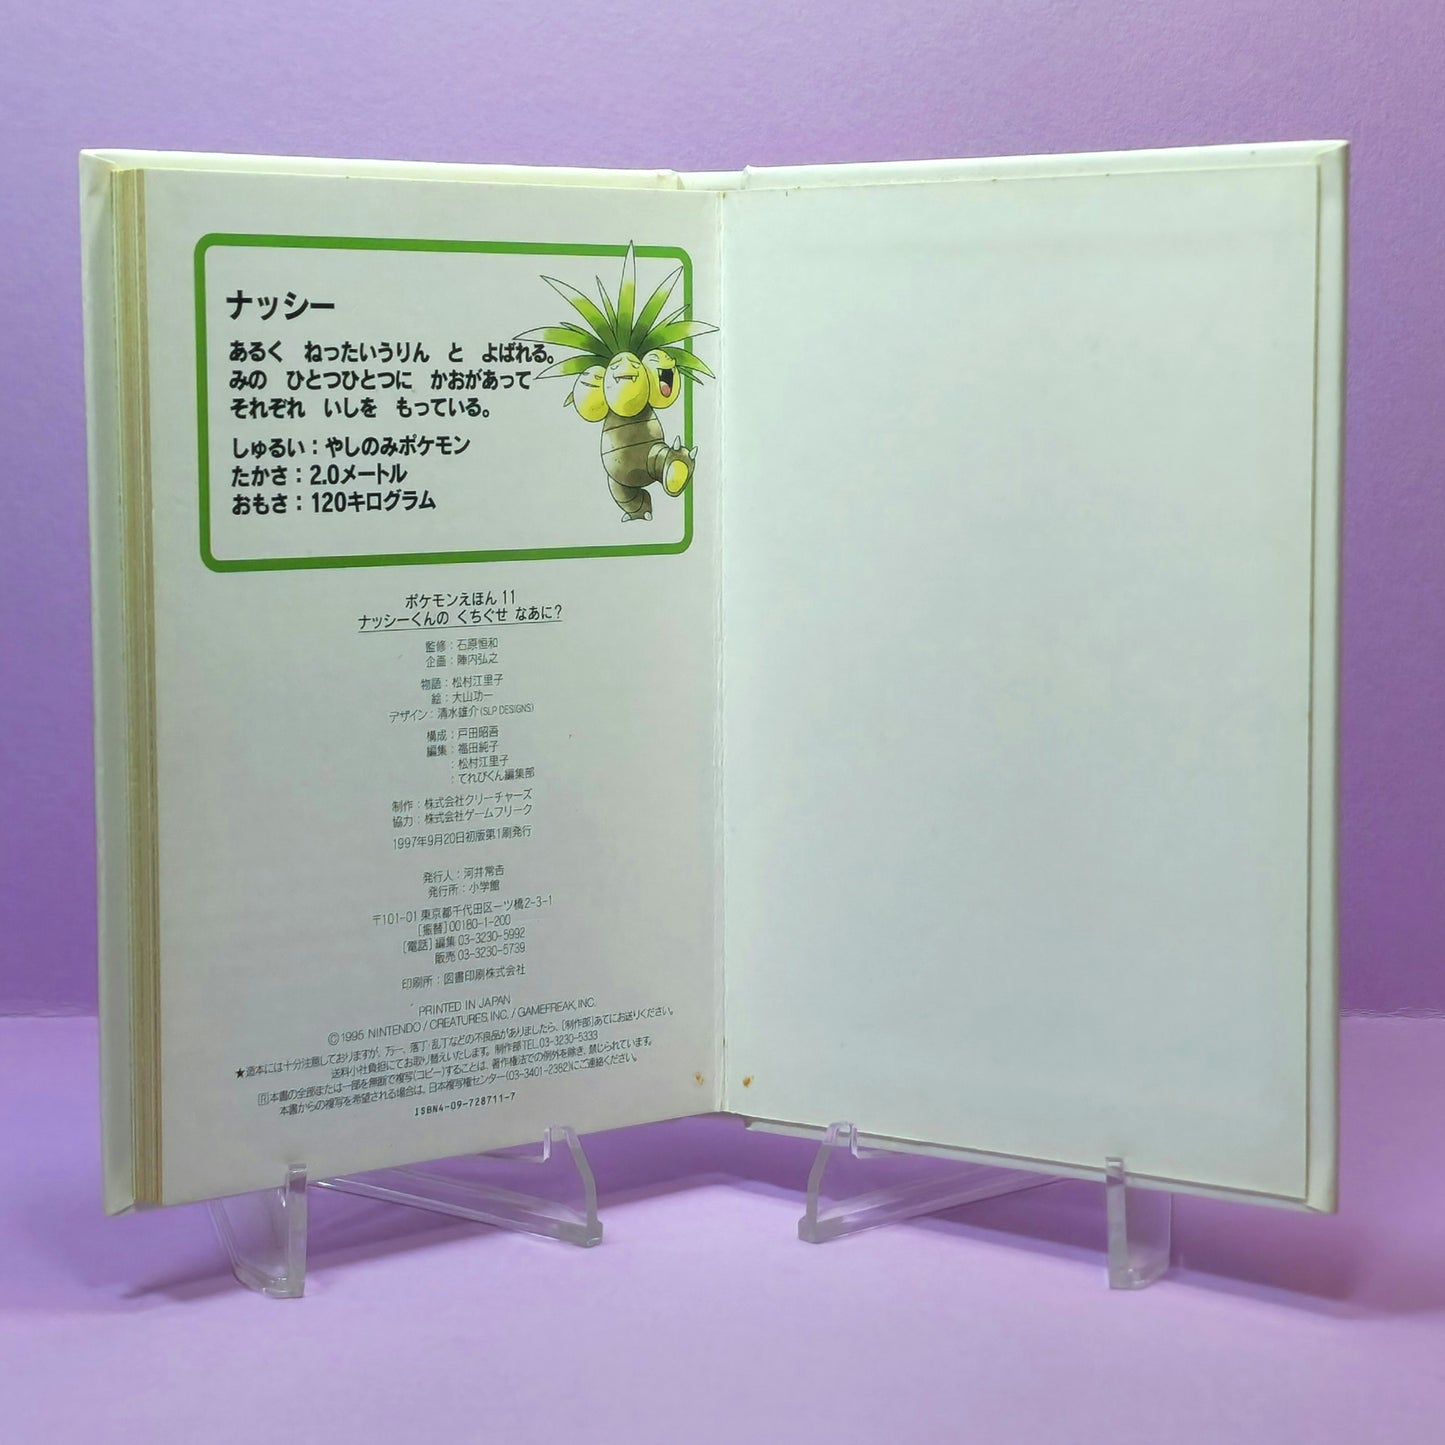 ナッシー
あるく ねったいうりん と よばれる。
みの ひとつひとつに かおがあって
それぞれ いしを もっている。
しゅるい：やしのみポケモン
たかさ：2.0メートル
おもさ：120キログラム
ポケモンえほん11
ナッシーくんの くちぐせ なあに？
監修：石原恒和
企画：陣内弘之
物語：松村江里子
絵：大山功一
デザイン：清水雄介(SLP DESIGNS)
構成：戸田昭吾
編集：福田純子
：松村江里子
：てれびくん編集部
制作：株式会社クリーチャーズ
協力：株式会社ゲームフリーク
1997年9月20日初版第1刷発行
発行人：河井常吉
発行所：小学館
〒101-01 東京都千代田区一ツ橋2-3-1
[振替]00180-1-200
[電話]編集03-3230-5992
販売03-3230-5739
印刷所：図書印刷株式会社
PRINTED IN JAPAN
©1995 NINTENDO/CREATURES,INC./GAMEFREAK,INC.
★造本には十分注意しておりますが、万一、落丁・乱丁などの不良品がありましたら、[制作部]あてにお送りください。
送料小社負担にてお取り替えいたします。制作部TEL.03-3230-5333
Ⓡ本書の全部または一部を無断で複写(コピー)することは、著作権法での例外を除き、禁じられています。
本書からの複写を希望される場合は、日本複写権センター(03-3401-2382)にご連絡ください。
ISBN4-09-728711-7